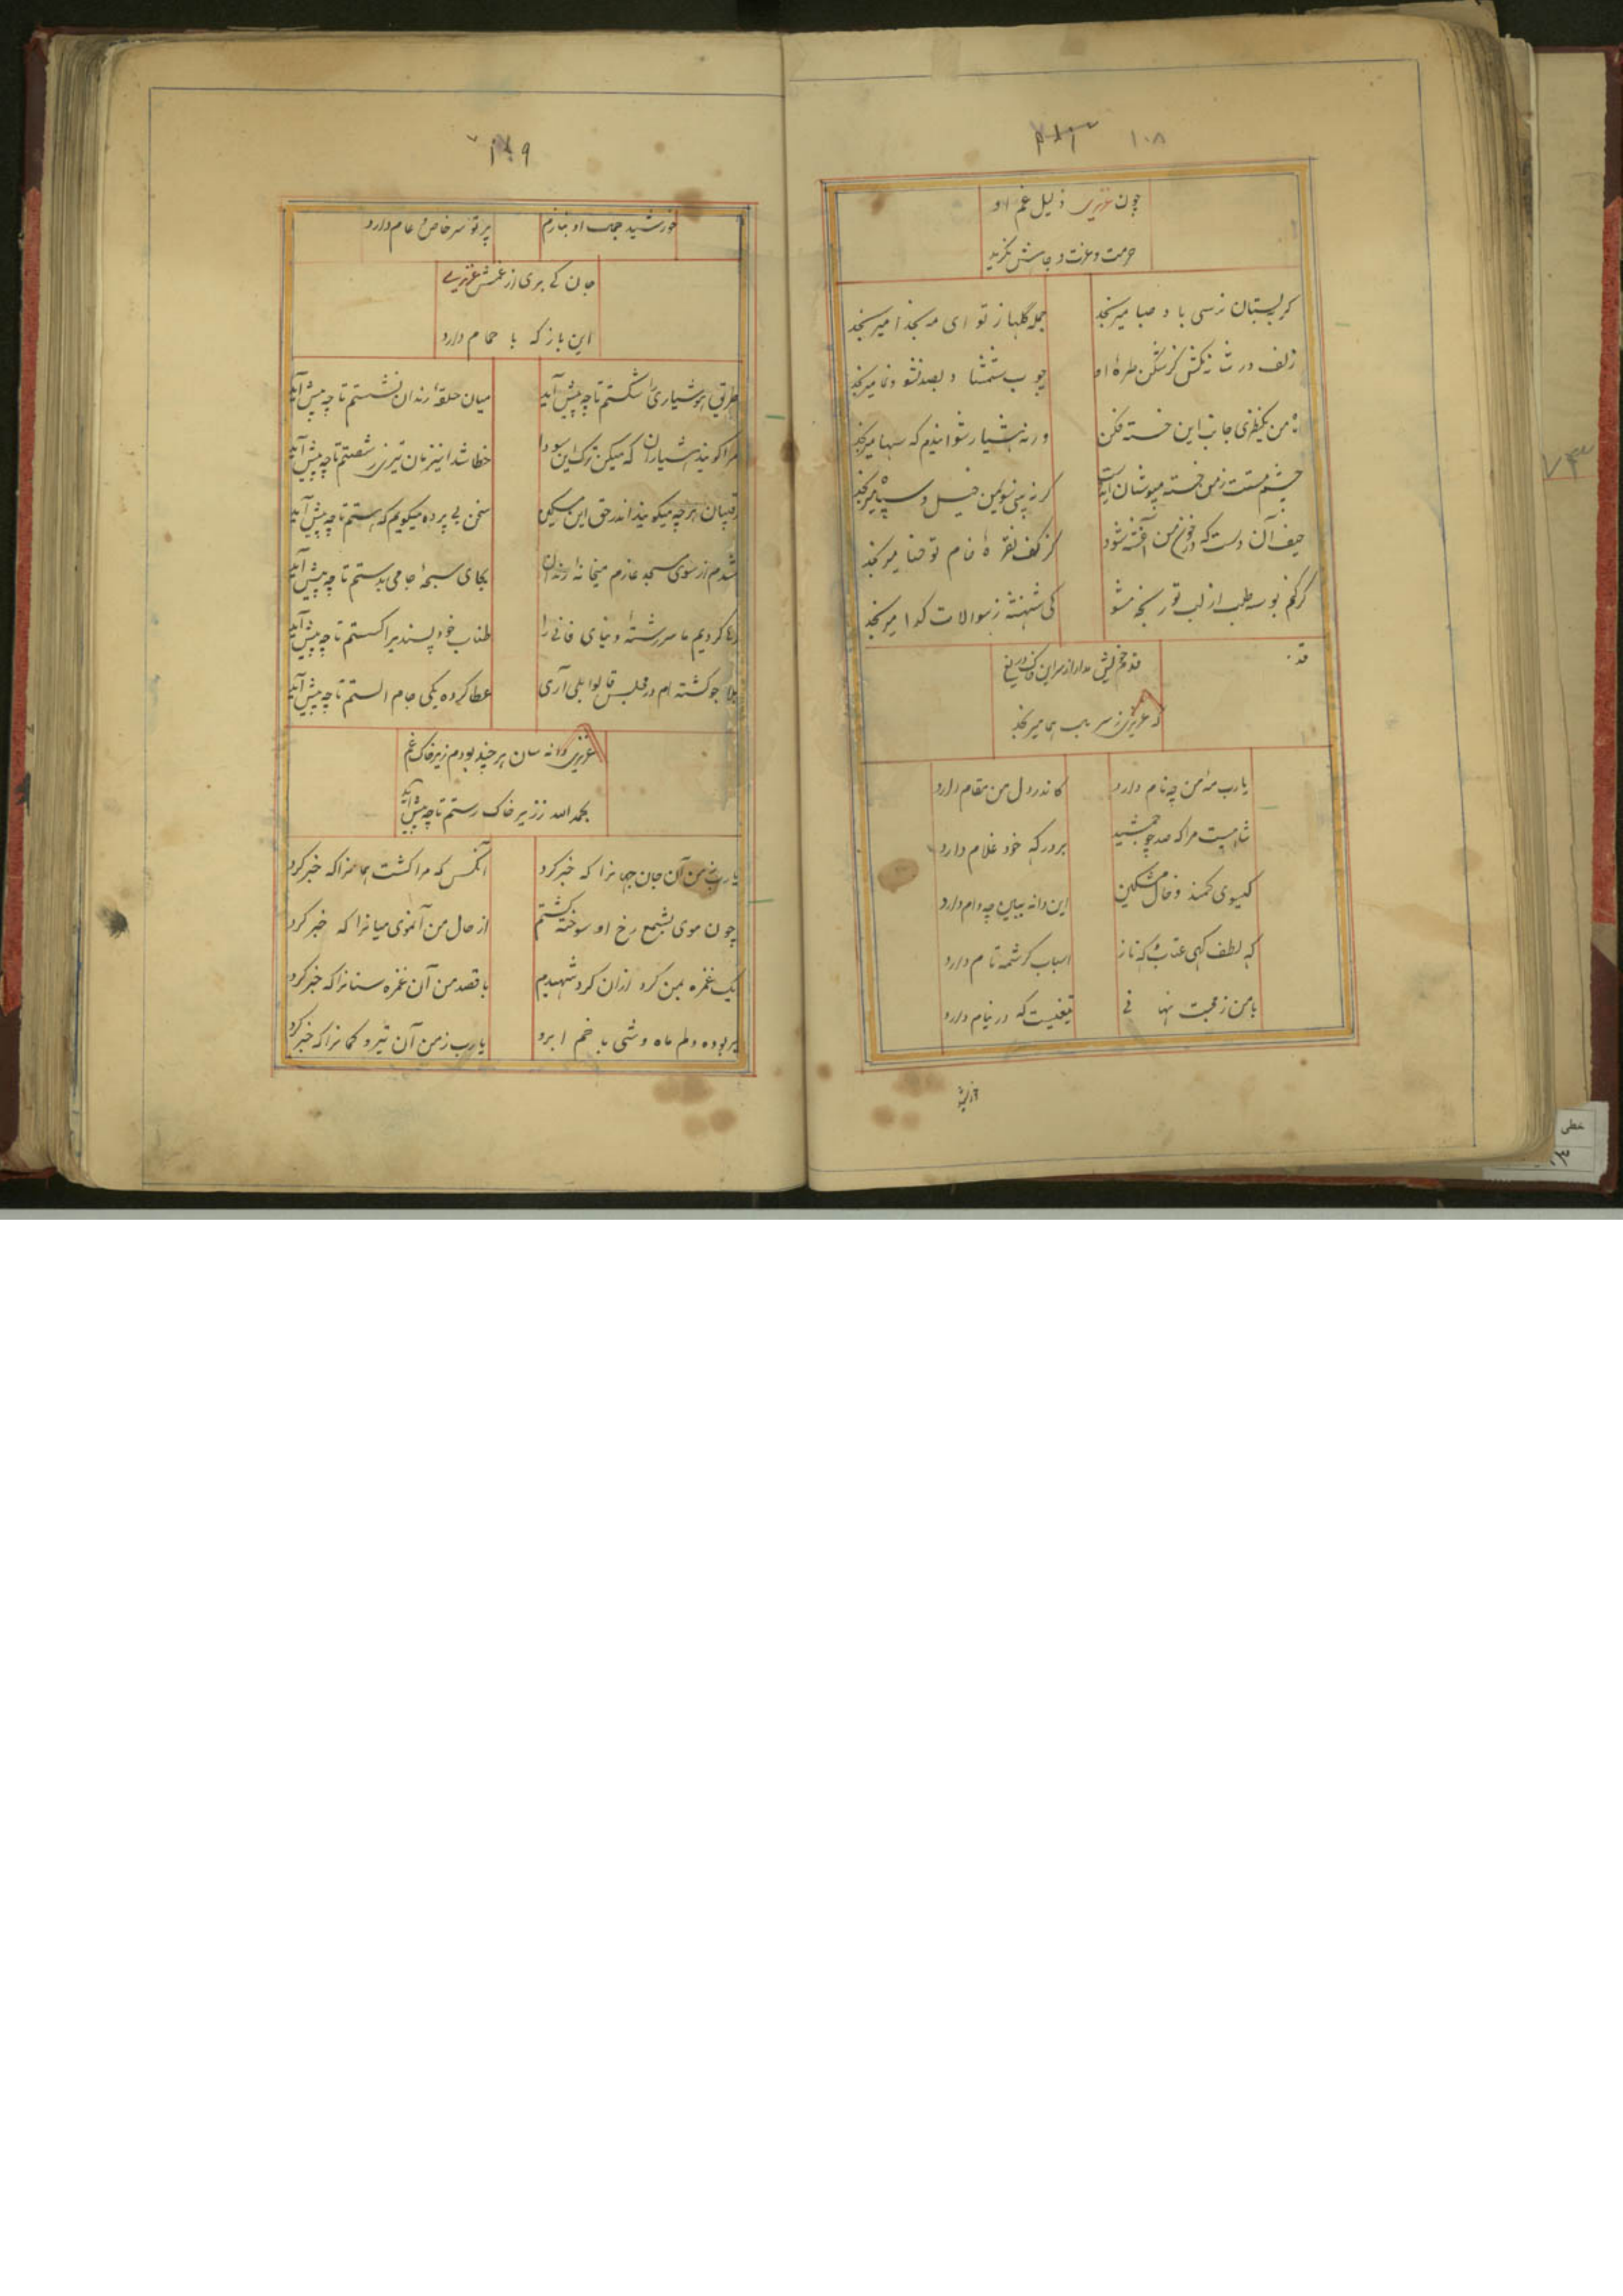 ۱۰۸
چون عزیزی ذلیل غم او
حرمت و عزت و جاهش نگرید
گر ببستان نرسی باد صبا میرنجد
جمله گلها ز تو ای مه بخدا میرنجد
زلف در شانه مکش گر شکن طره او
چوب شمشاد
من یکنظری جانب این خسته فکن
ورنه بسیار
چشم مستت ز من خسته مپوشان
حیف آن دست که در خون من آغشته شود
کز کف نقره فام تو حنا میرنجد
گر کنم بوسه طلب از لب تو رنجه مشو
کی شهنشه ز سوالات گدا میرنجد
قد
قدم خویش مدار از سر این خاک دریغ
که عزیزی ز سر
یارب مه من چه نام دارد
کاندر دل من مقام دارد
شاهیست مرا که صد چو جمشید
بر درگه خود غلام دارد
گیسوی کمند و خال مشکین
این دانه ببین چه دام دارد
گه لطف گهی عتاب گه ناز
اسباب کرشمه تام دارد
با من ز محبت نهانی
تیغیست که در نیام دارد
خورشید
۱۰۹
خورشید جمال او بنازم
پرتو بسر خاص و عام دارد
جان کی بری از غمش عزیزی
این باز که با حمام دارد
طریق هوشیاری را شکستم تا چه پیش آید
میان حلقه رندان نشستم تا چه پیش آید
مرا گویند هشیاران که میکن ترک این سودا
خطا شد اینزمان تیری ز شصتم تا چه پیش آید
رقیبان هرچه میگویند اندر حق این مسکین
سخن بی پرده میگویم که هستم تا چه پیش آید
شدم از سوی مسجد عازم میخانه رندان
بجای سبحه جامی بدستم تا چه پیش آید
رها کردیم ما سررشته دنیای فانی را
طناب خودپسندی را گسستم تا چه پیش آید
بلا جو گشته ام در مجلس قالوا بلی آری
عطا کرده یکی جام الستم تا چه پیش آید
عزیزی دانه سان هر چند بودم زیر خاک غم
بحمدالله ز زیر خاک رستم تا چه پیش آید
یارب ز من آن جان جهانرا که خبر کرد
آنکس که مرا کشت همانرا که خبر کرد
چون موی بشمع رخ او سوخته گشتم
از حال من آنموی میانرا که خبر کرد
یک غمزه بمن کرد ازان کرد شهیدم
با قصد من آن غمزه سنانرا که خبر کرد
بربوده دلم ماه وشی با خم ابرو
یارب ز من آن تیر و کمانرا که خبر کرد
۷۴
خطی